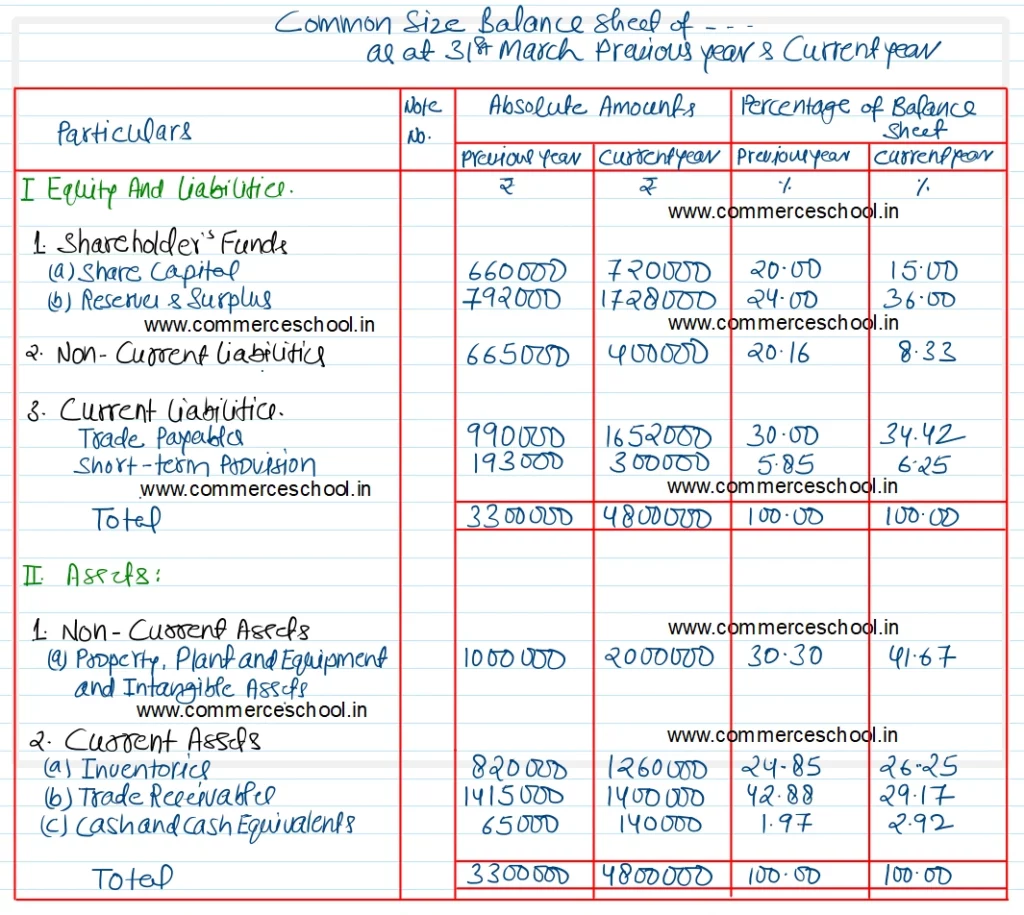 Common Size Balance Sheet of - - -
as at 31st March Previous year & Current year
Particulars Note No. Absolute Amounts Percentage of Balance Sheet
Previous year Current year Previous year Current year
I Equity And Liabilities. ₹ ₹ % %
www.commerceschool.in
1. Shareholder's Funds
(a) Share Capital 660000 720000 20.00 15.00
(b) Reserves & Surplus 792000 1728000 24.00 36.00
www.commerceschool.in www.commerceschool.in
2. Non-Current Liabilities 665000 400000 20.16 8.33
3. Current Liabilities.
Trade Payables 990000 1652000 30.00 34.42
Short-term Provision 193000 300000 5.85 6.25
www.commerceschool.in www.commerceschool.in
Total 3300000 4800000 100.00 100.00
II. Assets:
1. Non-Current Assets www.commerceschool.in
(a) Property, Plant and Equipment 1000000 2000000 30.30 41.67
and Intangible Assets
www.commerceschool.in
2. Current Assets www.commerceschool.in
(a) Inventories 820000 1260000 24.85 26.25
(b) Trade Receivables 1415000 1400000 42.88 29.17
(c) Cash and Cash Equivalents 65000 140000 1.97 2.92
Total 3300000 4800000 100.00 100.00